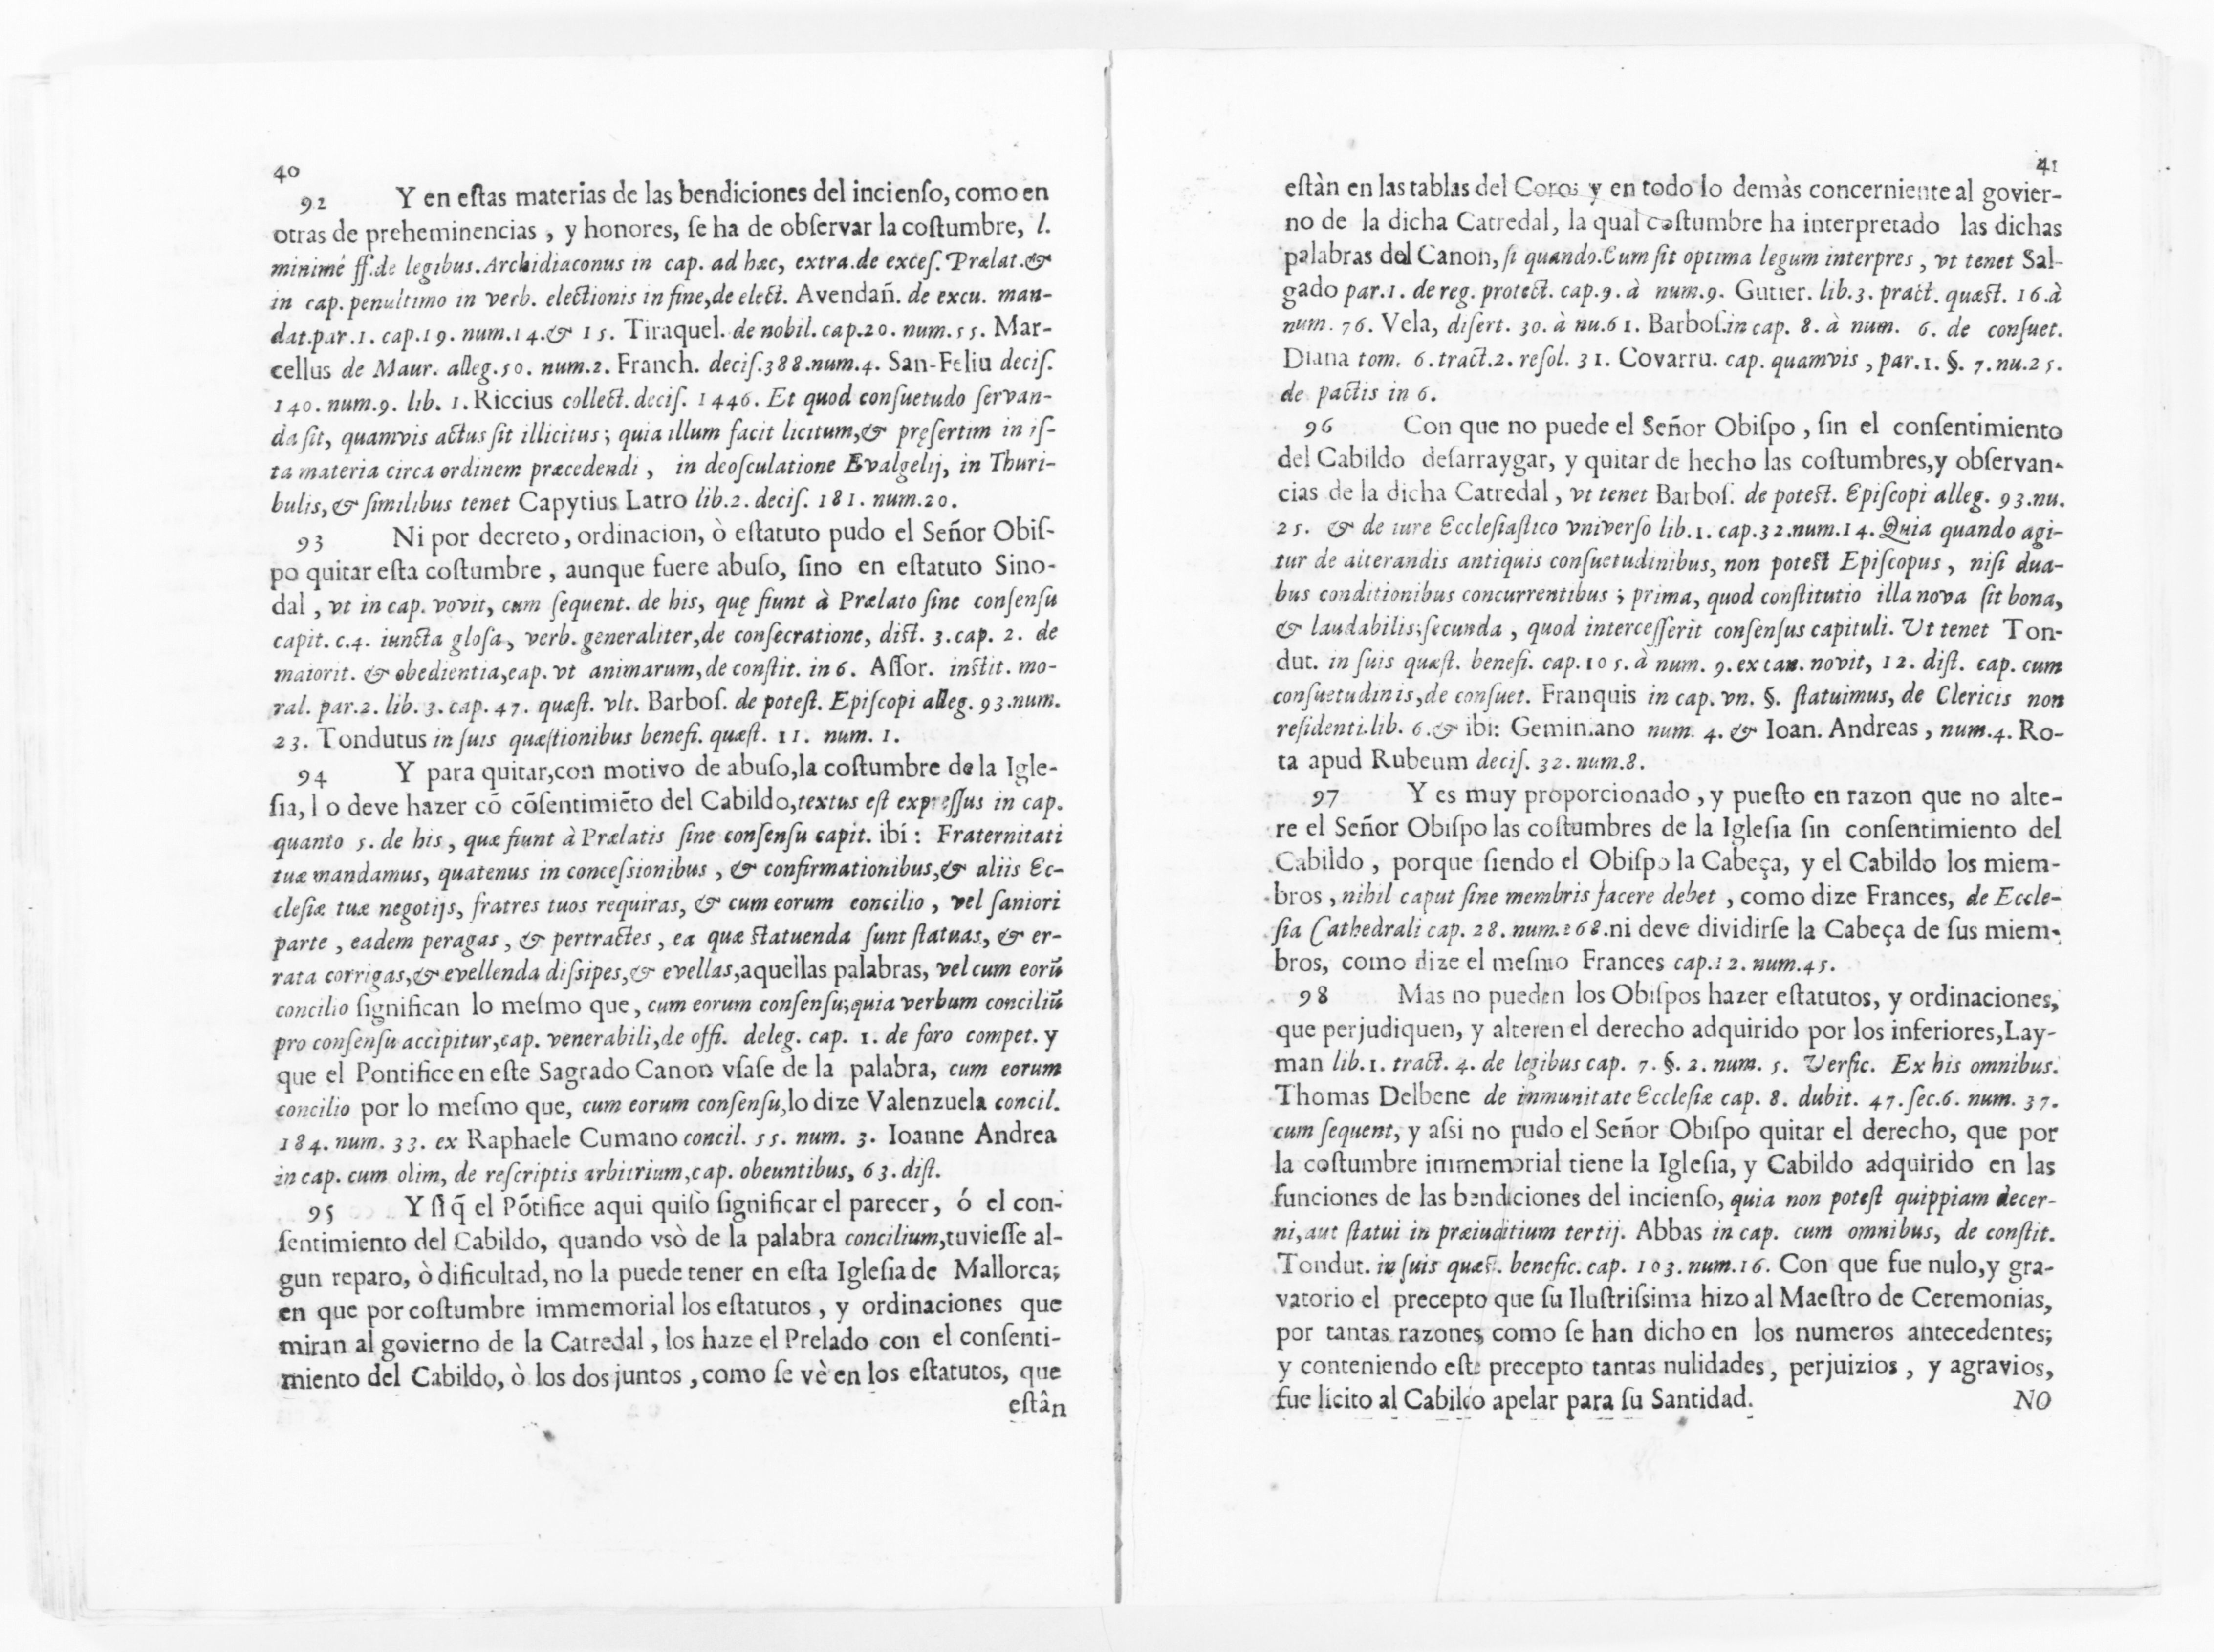 40
92 Y en eſtas materias de las bendiciones del incienſo, como en
otras de preheminencias, y honores, ſe ha de obſervar la coſtumbre, l.
minimé ff. de legibus. Archidiaconus in cap. ad hæc, extra. de exceſ. Prælat. &
in cap. penultimo in verb. electionis in fine, de elect. Avendañ. de excu. man-
dat. par. 1. cap. 19. num. 14. & 15. Tiraquel. de nobil. cap. 20. num. 55. Mar-
cellus de Maur. alleg. 50. num. 2. Franch. deciſ. 388. num. 4. San-Feliu deciſ.
140. num. 9. lib. 1. Riccius collect. deciſ. 1446. Et quod conſuetudo ſervan-
da ſit, quamvis actus ſit illicitus; quia illum facit licitum, & pręſertim in iſ-
ta materia circa ordinem præcedendi, in deoſculatione Evalgelij, in Thuri-
bulis, & ſimilibus tenet Capytius Latro lib. 2. deciſ. 181. num. 20.
93 Ni por decreto, ordinacion, ò eſtatuto pudo el Señor Obiſ-
po quitar eſta coſtumbre, aunque fuere abuſo, ſino en eſtatuto Sino-
dal, vt in cap. vovit, cum ſequent. de his, quę fiunt à Prælato ſine conſenſu
capit. c. 4. iuncta gloſa, verb. generaliter, de conſecratione, diſt. 3. cap. 2. de
maiorit. & obedientia, cap. vt animarum, de conſtit. in 6. Aſſor. inſtit. mo-
ral. par. 2. lib. 3. cap. 47. quæſt. vlt. Barboſ. de poteſt. Epiſcopi alleg. 93. num.
23. Tondutus in ſuis quæſtionibus benefi. quæſt. 11. num. 1.
94 Y para quitar, con motivo de abuſo, la coſtumbre de la Igle-
ſia, l o deve hazer cõ cõſentimiẽto del Cabildo, textus eſt expreſſus in cap.
quanto 5. de his, quæ fiunt à Prælatis ſine conſenſu capit. ibi: Fraternitati
tuæ mandamus, quatenus in conceſsionibus, & confirmationibus, & aliis Ec-
cleſiæ tuæ negotijs, fratres tuos requiras, & cum eorum concilio, vel ſaniori
parte, eadem peragas, & pertractes, ea quæ ſtatuenda ſunt ſtatuas, & er-
rata corrigas, & evellenda diſsipes, & evellas, aquellas palabras, vel cum eorũ
concilio ſignifican lo meſmo que, cum eorum conſenſu; quia verbum conciliũ
pro conſenſu accipitur, cap. venerabili, de offi. deleg. cap. 1. de foro compet. y
que el Pontifice en eſte Sagrado Canon vſaſe de la palabra, cum eorum
concilio por lo meſmo que, cum eorum conſenſu, lo dize Valenzuela concil.
184. num. 33. ex Raphaele Cumano concil. 55. num. 3. Ioanne Andrea
in cap. cum olim, de reſcriptis arbitrium, cap. obeuntibus, 63. diſt.
95 Y ſi q̃ el Põtifice aqui quiſo ſignificar el parecer, ó el con-
ſentimiento del Cabildo, quando vsò de la palabra concilium, tuvieſſe al-
gun reparo, ò dificultad, no la puede tener en eſta Igleſia de Mallorca;
en que por coſtumbre immemorial los eſtatutos, y ordinaciones que
miran al govierno de la Catredal, los haze el Prelado con el conſenti-
miento del Cabildo, ò los dos juntos, como ſe vè en los eſtatutos, que
eſtân
41
eſtàn en las tablas del Coro; y en todo lo demàs concerniente al govier-
no de la dicha Catredal, la qual coſtumbre ha interpretado las dichas
palabras del Canon, ſi quando. Cum ſit optima legum interpres, vt tenet Sal-
gado par. 1. de reg. protect. cap. 9. à num. 9. Gutier. lib. 3. pract. quæſt. 16. à
num. 76. Vela, diſert. 30. à nu. 61. Barboſ. in cap. 8. à num. 6. de conſuet.
Diana tom. 6. tract. 2. reſol. 31. Covarru. cap. quamvis, par. 1. §. 7. nu. 25.
de pactis in 6.
96 Con que no puede el Señor Obiſpo, ſin el conſentimiento
del Cabildo deſarraygar, y quitar de hecho las coſtumbres, y obſervan-
cias de la dicha Catredal, vt tenet Barboſ. de poteſt. Epiſcopi alleg. 93. nu.
25. & de iure Eccleſiaſtico vniverſo lib. 1. cap. 32. num. 14. Quia quando agi-
tur de alterandis antiquis conſuetudinibus, non poteſt Epiſcopus, niſi dua-
bus conditionibus concurrentibus; prima, quod conſtitutio illa nova ſit bona,
& laudabilis; ſecunda, quod interceſſerit conſenſus capituli. Vt tenet Ton-
dut. in ſuis quæſt. benefi. cap. 105. à num. 9. ex can. novit, 12. diſt. cap. cum
conſuetudinis, de conſuet. Franquis in cap. vn. §. ſtatuimus, de Clericis non
reſidenti. lib. 6. & ibi: Geminiano num. 4. & Ioan. Andreas, num. 4. Ro-
ta apud Rubeum deciſ. 32. num. 8.
97 Y es muy proporcionado, y pueſto en razon que no alte-
re el Señor Obiſpo las coſtumbres de la Igleſia ſin conſentimiento del
Cabildo, porque ſiendo el Obiſpo la Cabeça, y el Cabildo los miem-
bros, nihil caput ſine membris facere debet, como dize Frances, de Eccle-
ſia Cathedrali cap. 28. num. 268. ni deve dividirſe la Cabeça de ſus miem-
bros, como dize el meſmo Frances cap. 12. num. 45.
98 Mas no pueden los Obiſpos hazer eſtatutos, y ordinaciones,
que perjudiquen, y alteren el derecho adquirido por los inferiores, Lay-
man lib. 1. tract. 4. de legibus cap. 7. §. 2. num. 5. Verſic. Ex his omnibus.
Thomas Delbene de inmunitate Eccleſiæ cap. 8. dubit. 47. ſec. 6. num. 37.
cum ſequent, y aſsi no pudo el Señor Obiſpo quitar el derecho, que por
la coſtumbre immemorial tiene la Igleſia, y Cabildo adquirido en las
funciones de las bendiciones del incienſo, quia non poteſt quippiam decer-
ni, aut ſtatui in præiuditium tertij. Abbas in cap. cum omnibus, de conſtit.
Tondut. in ſuis quæſt. benefic. cap. 103. num. 16. Con que fue nulo, y gra-
vatorio el precepto que ſu Iluſtriſsima hizo al Maeſtro de Ceremonias,
por tantas razones como ſe han dicho en los numeros antecedentes;
y conteniendo eſte precepto tantas nulidades, perjuizios, y agravios,
fue licito al Cabildo apelar para ſu Santidad.
NO